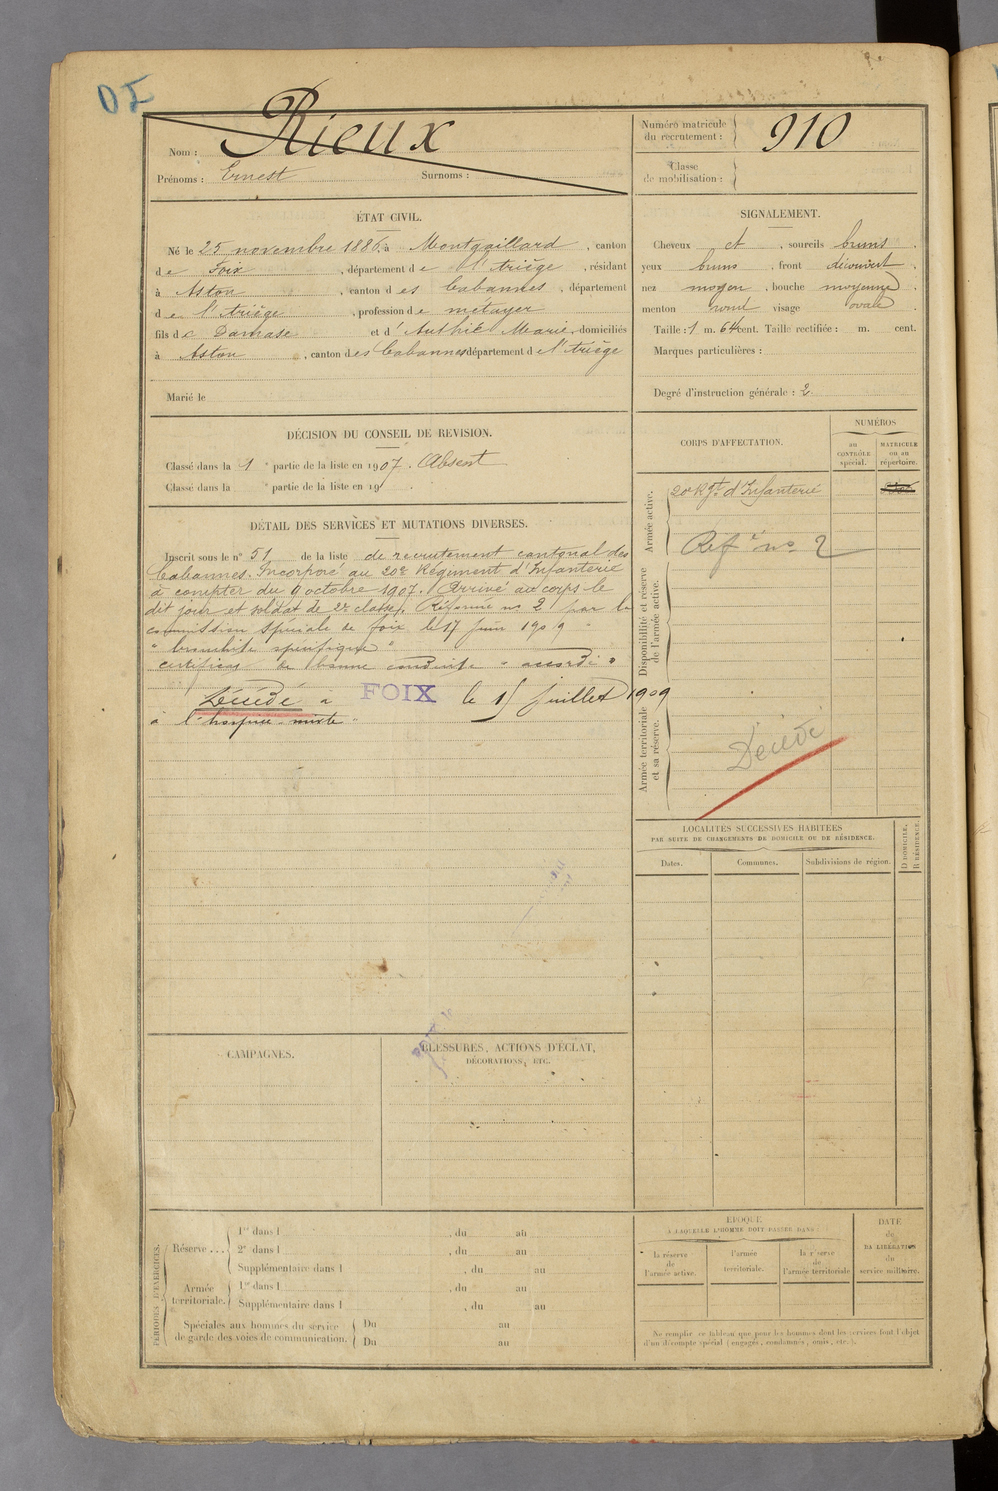 Nom : Rieux
Prénoms : Ernest Surnoms :
Numéro matricule du recrutement : 910
Classe de mobilisation :
ÉTAT CIVIL.
Né le 25 novembre 1886, à Montgaillard, canton
de Foix, département de l'Ariège, résidant
à Aston, canton des Cabannes, département
de l'Ariège, profession de métayer
fils de Damase et d'Authié Marie, domiciliés
à Aston, canton des Cabannes département de l'Ariège
Marié le
SIGNALEMENT.
Cheveux et, sourcils bruns.
yeux bruns, front découvert,
nez moyen, bouche moyenne,
menton rond visage ovale
Taille : 1 m. 64 cent. Taille rectifiée : m. cent.
Marques particulières :
Degré d'instruction générale : 2.
DÉCISION DU CONSEIL DE REVISION.
Classé dans la 1e partie de la liste en 1907. Absent
Classé dans la e partie de la liste en 19 .
DÉTAIL DES SERVICES ET MUTATIONS DIVERSES.
Inscrit sous le n° 51 de la liste de recrutement cantonal des
Cabannes. Incorporé au 20e Régiment d'Infanterie
à compter du 9 octobre 1907. Arrivé au corps le
dit jour et soldat de 2e classe. Réformé no 2 par la
commission spéciale de Foix le 17 juin 1909
" bronchite spécifique "
certificat de bonne conduite " accordé "
Décédé à FOIX le 15 juillet 1909
à l'hospice mixte.
CORPS D'AFFECTATION.
NUMÉROS
au CONTRÔLE spécial.
MATRICULE ou au répertoire.
Armée active.
20e Rgt d'Infanterie
Réfé no 2
Disponibilité et réserve de l'armée active.
Armée territoriale et sa réserve.
Décédé
LOCALITÉS SUCCESSIVES HABITÉES
PAR SUITE DE CHANGEMENTS DE DOMICILE OU DE RÉSIDENCE.
Dates.
Communes.
Subdivisions de région.
D DOMICILE,
R RÉSIDENCE.
CAMPAGNES.
BLESSURES, ACTIONS D'ÉCLAT,
DÉCORATIONS, ETC.
PÉRIODES D'EXERCICES.
Réserve ...
1re dans l , du au
2e dans l , du au
Supplémentaire dans l , du au
Armée territoriale.
1re dans l , du au
Supplémentaire dans l , du au
Spéciales aux hommes du service de garde des voies de communication.
Du au
Du au
ÉPOQUE
À LAQUELLE L'HOMME DOIT PASSER DANS :
la réserve de l'armée active.
l'armée territoriale.
la réserve de l'armée territoriale
DATE de LA LIBÉRATION du service militaire.
Ne remplir ce tableau que pour les hommes dont les services font l'objet
d'un décompte spécial (engagés, condamnés, omis, etc.).